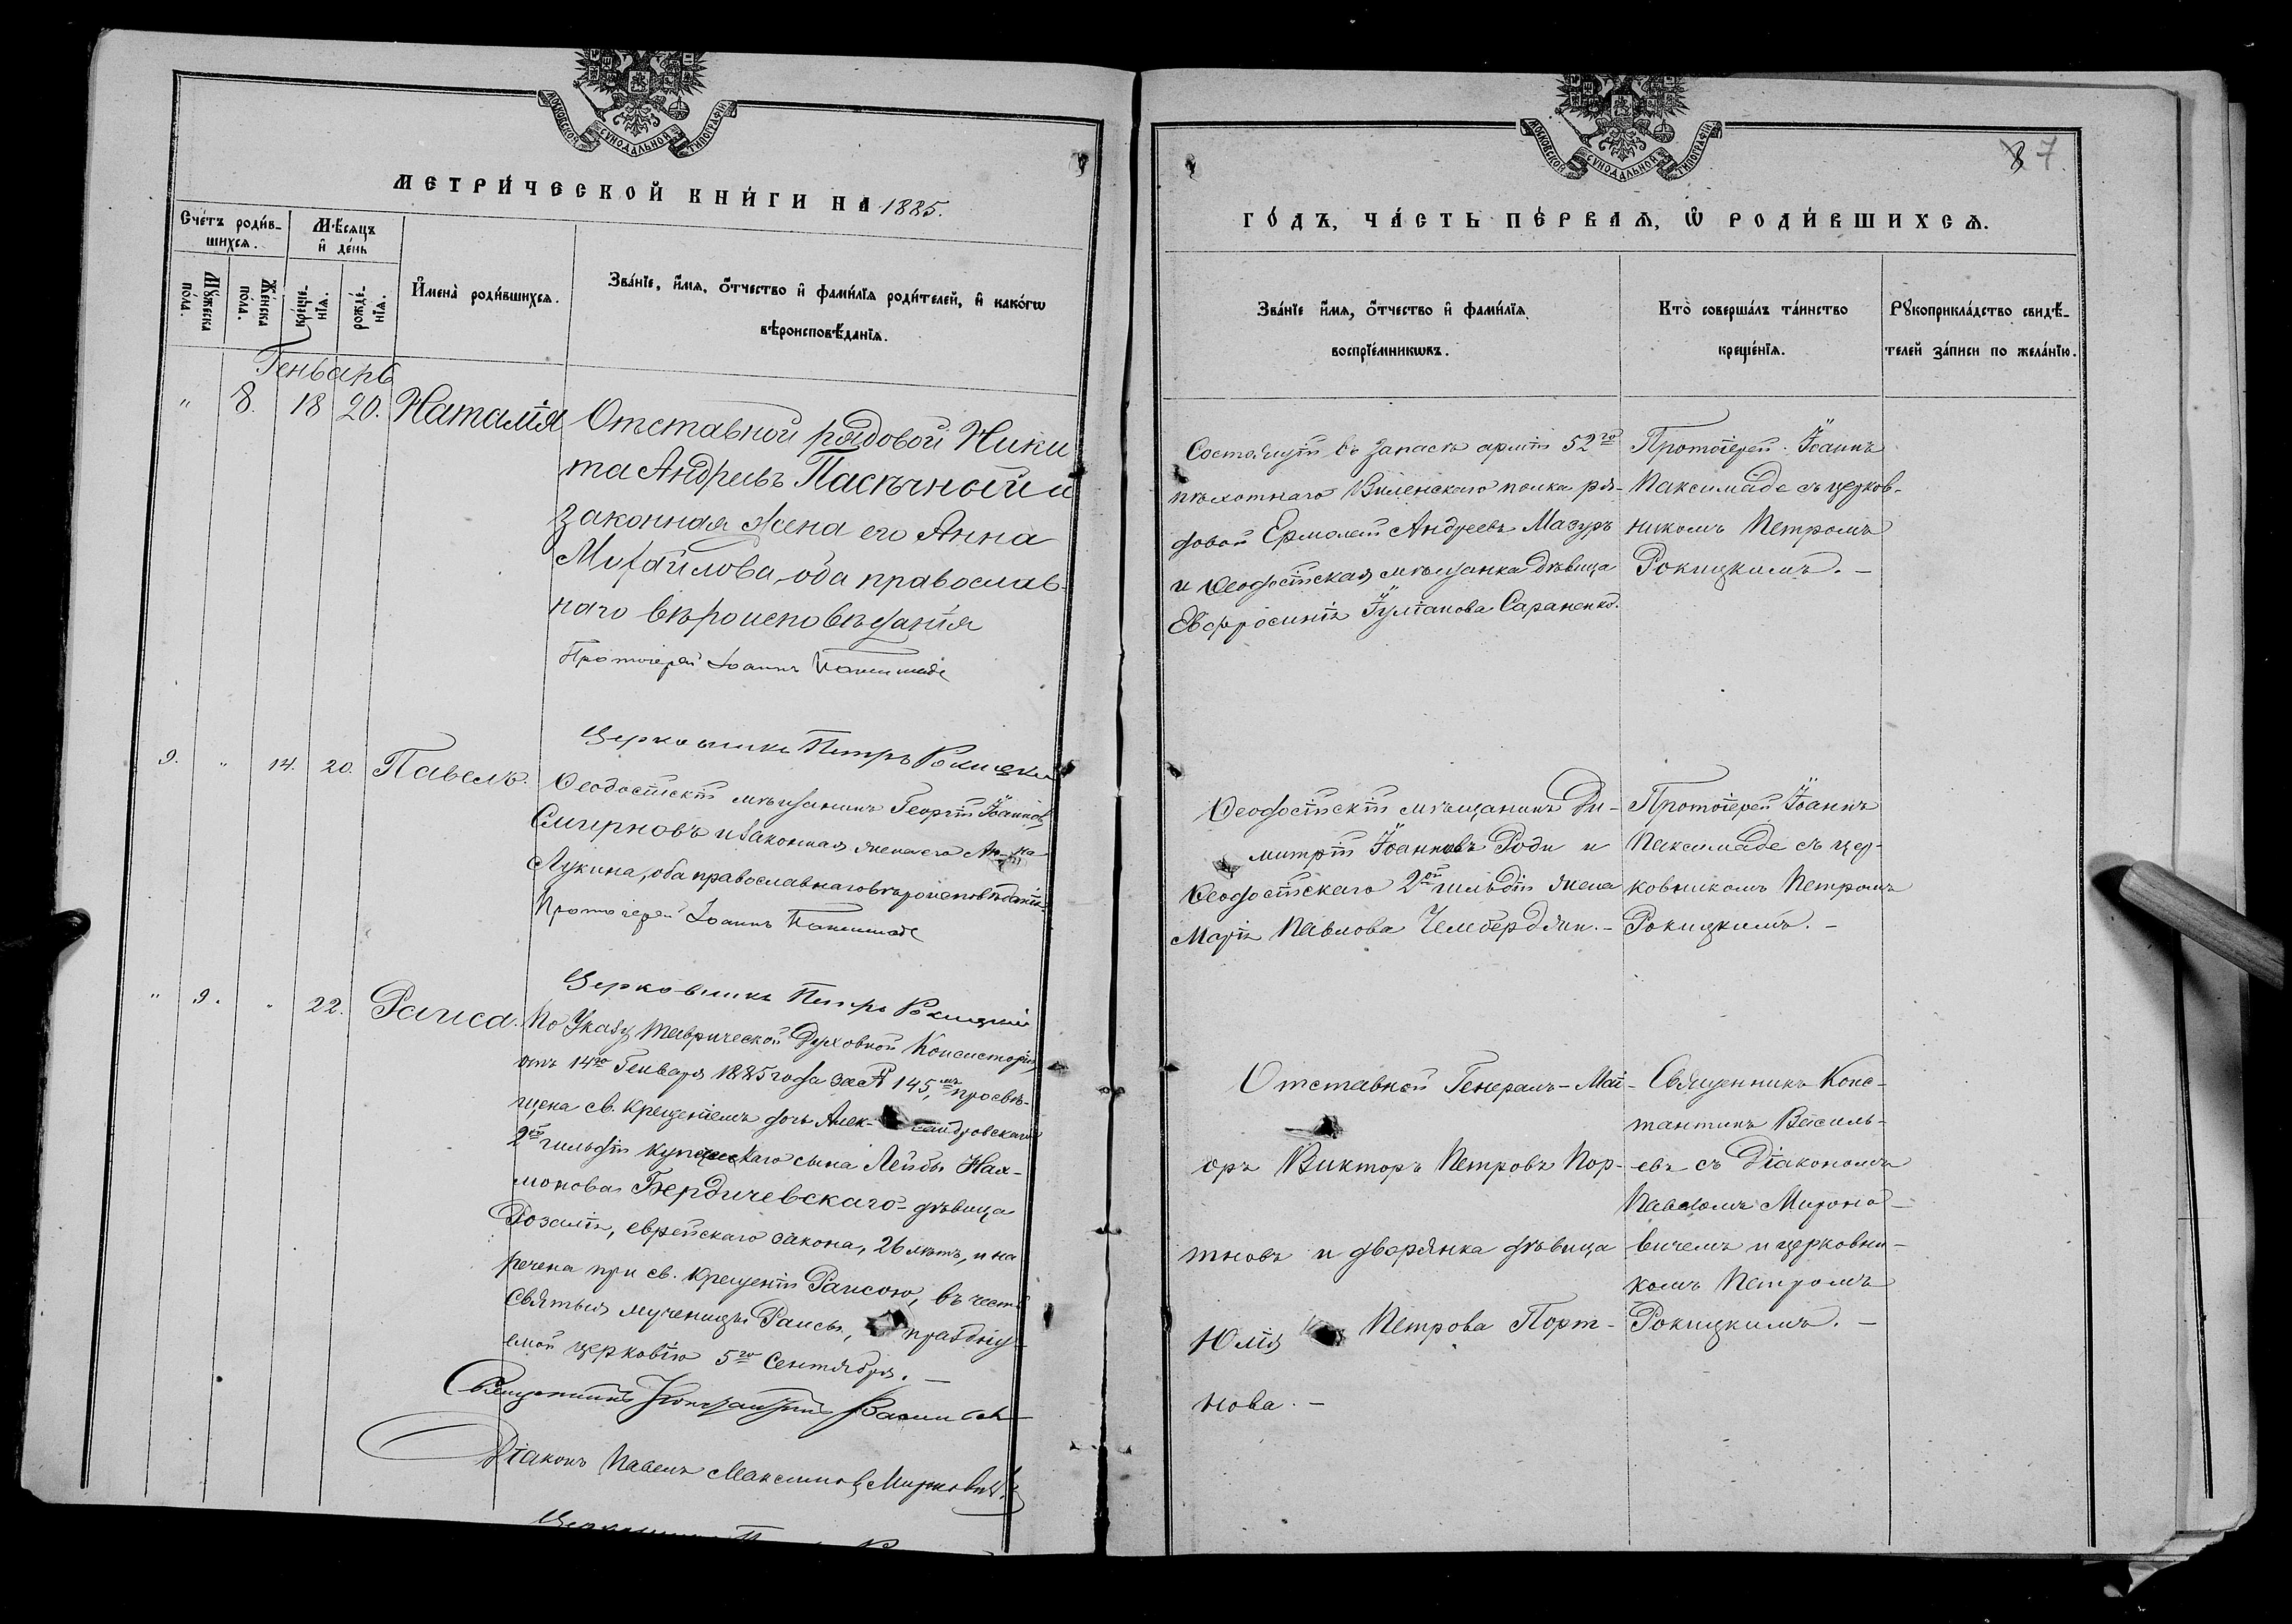 МОСКОВСКОЙ СУНОДАЛЬНОЙ ТИПОГРАФІИ
МЕТРИ́ЧЕСКОЙ КНИ́ГИ НА 1885.
Сче́тъ роди́в-
шихся.
Мѣ́сяцъ
и҆ де́нь
Мꙋ́жеска
по́ла.
Же́нска
по́ла.
креще́-
нїѧ.
рожде́-
нїѧ.
И҆мена̀ роди́вшихсѧ.
Зва́нїе, и҆́мѧ, ѻ҆́тчество и҆ фамѝлїѧ роди́телей, и҆ како́гѡ
вѣроисповѣ́данїѧ.
Генварь
" 8. 18 20. Наталія
Отставной рядовой Ники
та Андреевъ Пасѣчной и
законная жена его Анна
Михайлова, оба православ-
наго вѣроисповѣданія
Протоіерей Іоаннъ Паксимаде
Церковникъ Петръ Рокицкій
9. " 14. 20. Павелъ.
Ѳеодосійскій мѣщанинъ Георгій Іоанновъ
Смирновъ и законная жена его Анна
Лукина, оба православнаго вѣроисповѣданія.
Протоіерей Іоаннъ Паксимаде
Церковникъ Петръ Рокицкій
" 9. " 22. Раиса.
По Указу Таврической Духовной Консисторіи,
отъ 14го Генваря 1885 года за № 145, просвѣ-
щена св. крещеніемъ дочь Алек- сандровскаго
2ой гильдіи купеческаго сына Лейбы Нах-
монова Бердичевскаго – дѣвица
Розалія, еврейскаго закона, 26 лѣтъ, и на
речена при св. крещеніи Раисою, въ честь
Святыя мученицы Раисы, праздну-
емой церковію 5го Сентября. –
Священникъ Константинъ Васильевъ
Діаконъ Павелъ Максимовъ Мироновичъ
Церковникъ Петръ
МОСКОВСКОЙ СУНОДАЛЬНОЙ ТИПОГРАФІИ
8 7.
ГО́ДЪ, ЧА́СТЬ ПЕ́РВАѦ, Ѡ҆ РОДИ́ВШИХСѦ.
Зва́нїе и҆́мѧ, ѻ҆́тчество и҆ фамѝлїѧ
воспрїе́мникѡвъ.
Кто̀ соверша́лъ та́инство
креще́нїѧ.
Рꙋкоприкла́дство свидѣ́-
телей за́писи по жела́нїю.
Состоящій въ запасѣ арміи 52го
пѣхотнаго Виленскаго полка ря-
довой Ермолай Андреевъ Мазуръ
и Ѳеодосійская мѣщанка дѣвица
Евфросинія Іуліанова Сараненко.
Протоіерей Іоаннъ
Паксимаде съ церков-
никомъ Петромъ
Рокицкимъ. –
Ѳеодосійскій мѣщанинъ Ди-
митрій Іоанновъ Роди и
Ѳеодосійскаго 2ой гильдіи жена
Марія Павлова Чемберджи. –
Протоіерей Іоаннъ
Паксимаде съ цер-
ковникомъ Петромъ
Рокицкимъ. –
Отставной Генералъ-Маі-
оръ Викторъ Петровъ Пор-
тновъ и дворянка дѣвица
Юлія Петрова Порт-
нова. –
Священникъ Конс-
тантинъ Василь-
евъ съ Діакономъ
Павломъ Мироно-
вичемъ и церковни-
комъ Петромъ
Рокицкимъ. –